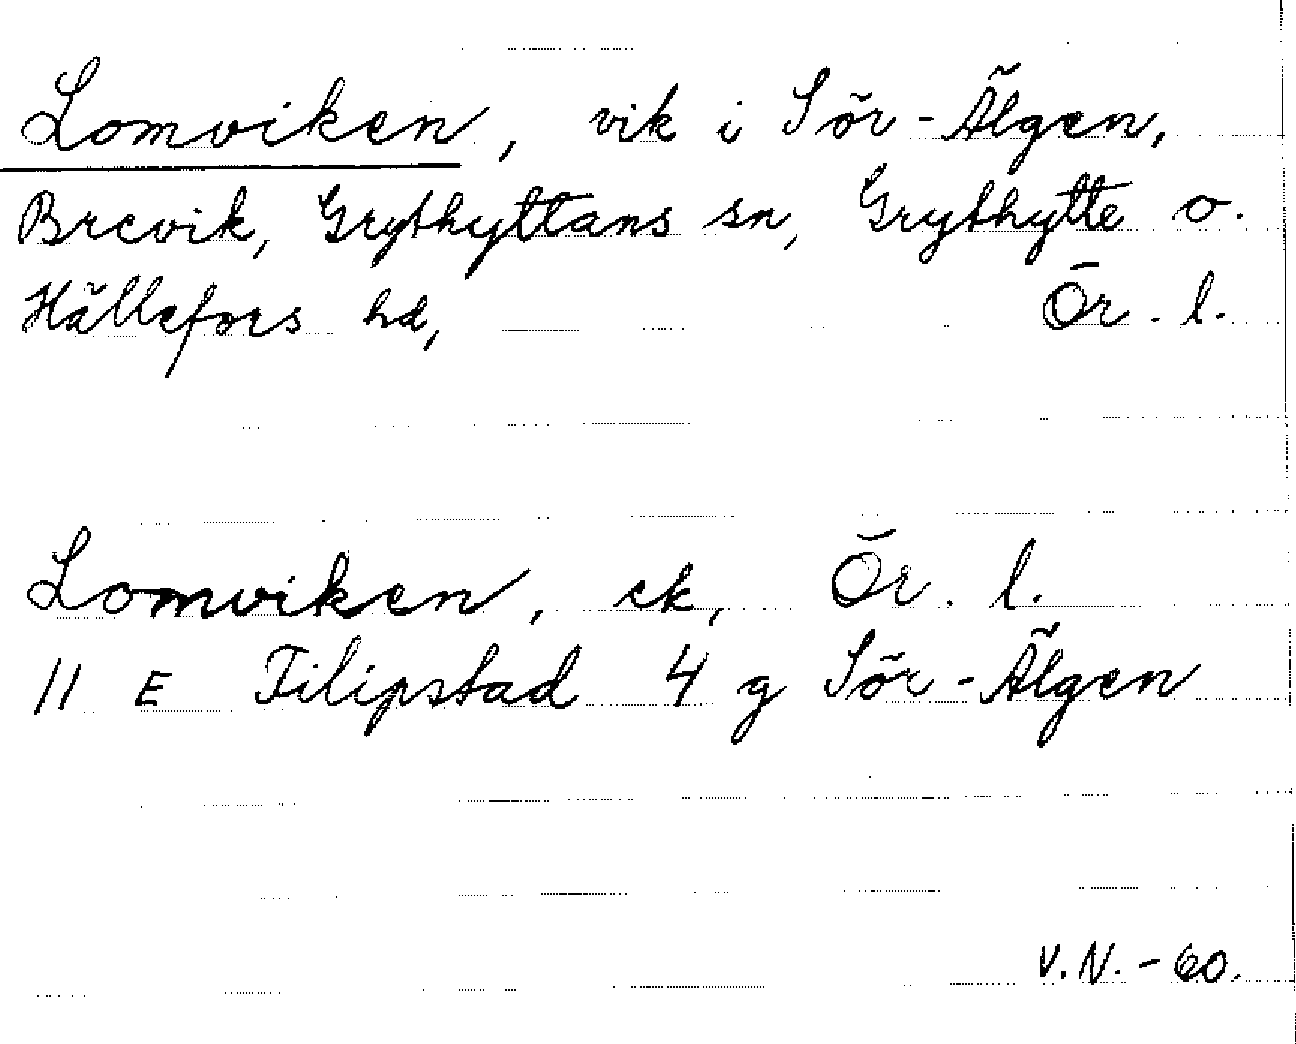 Lomviken, vik i Sör-Älgen,
Brevik, Grythyttans sn, Grythytte o.
Hällefors hd, Ör. l.
Lomviken, ek, Ör. l.
11 E Filipstad 4 g Sör-Älgen
V.N. - 60.